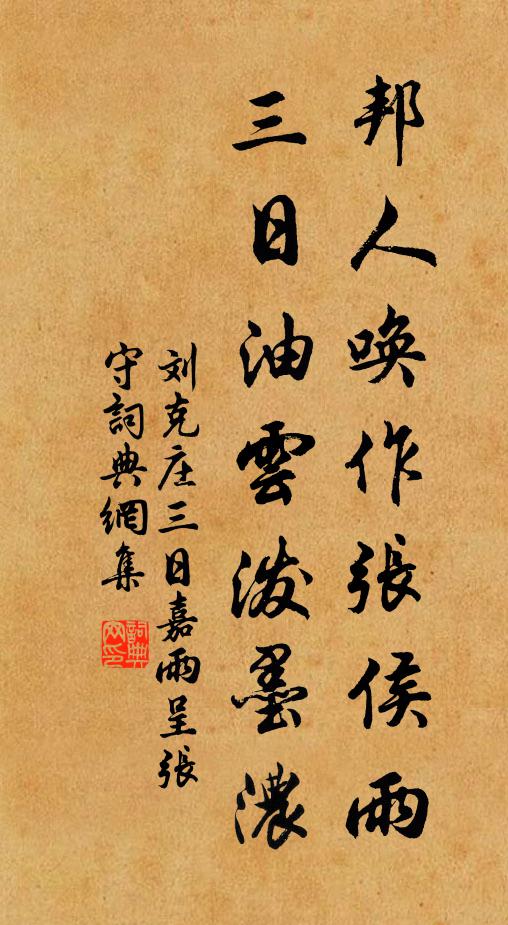 邦人唤作張侯雨
三日油雲潑墨濃
刘克庄三日嘉雨呈張
守詞典網集
詞典
网印